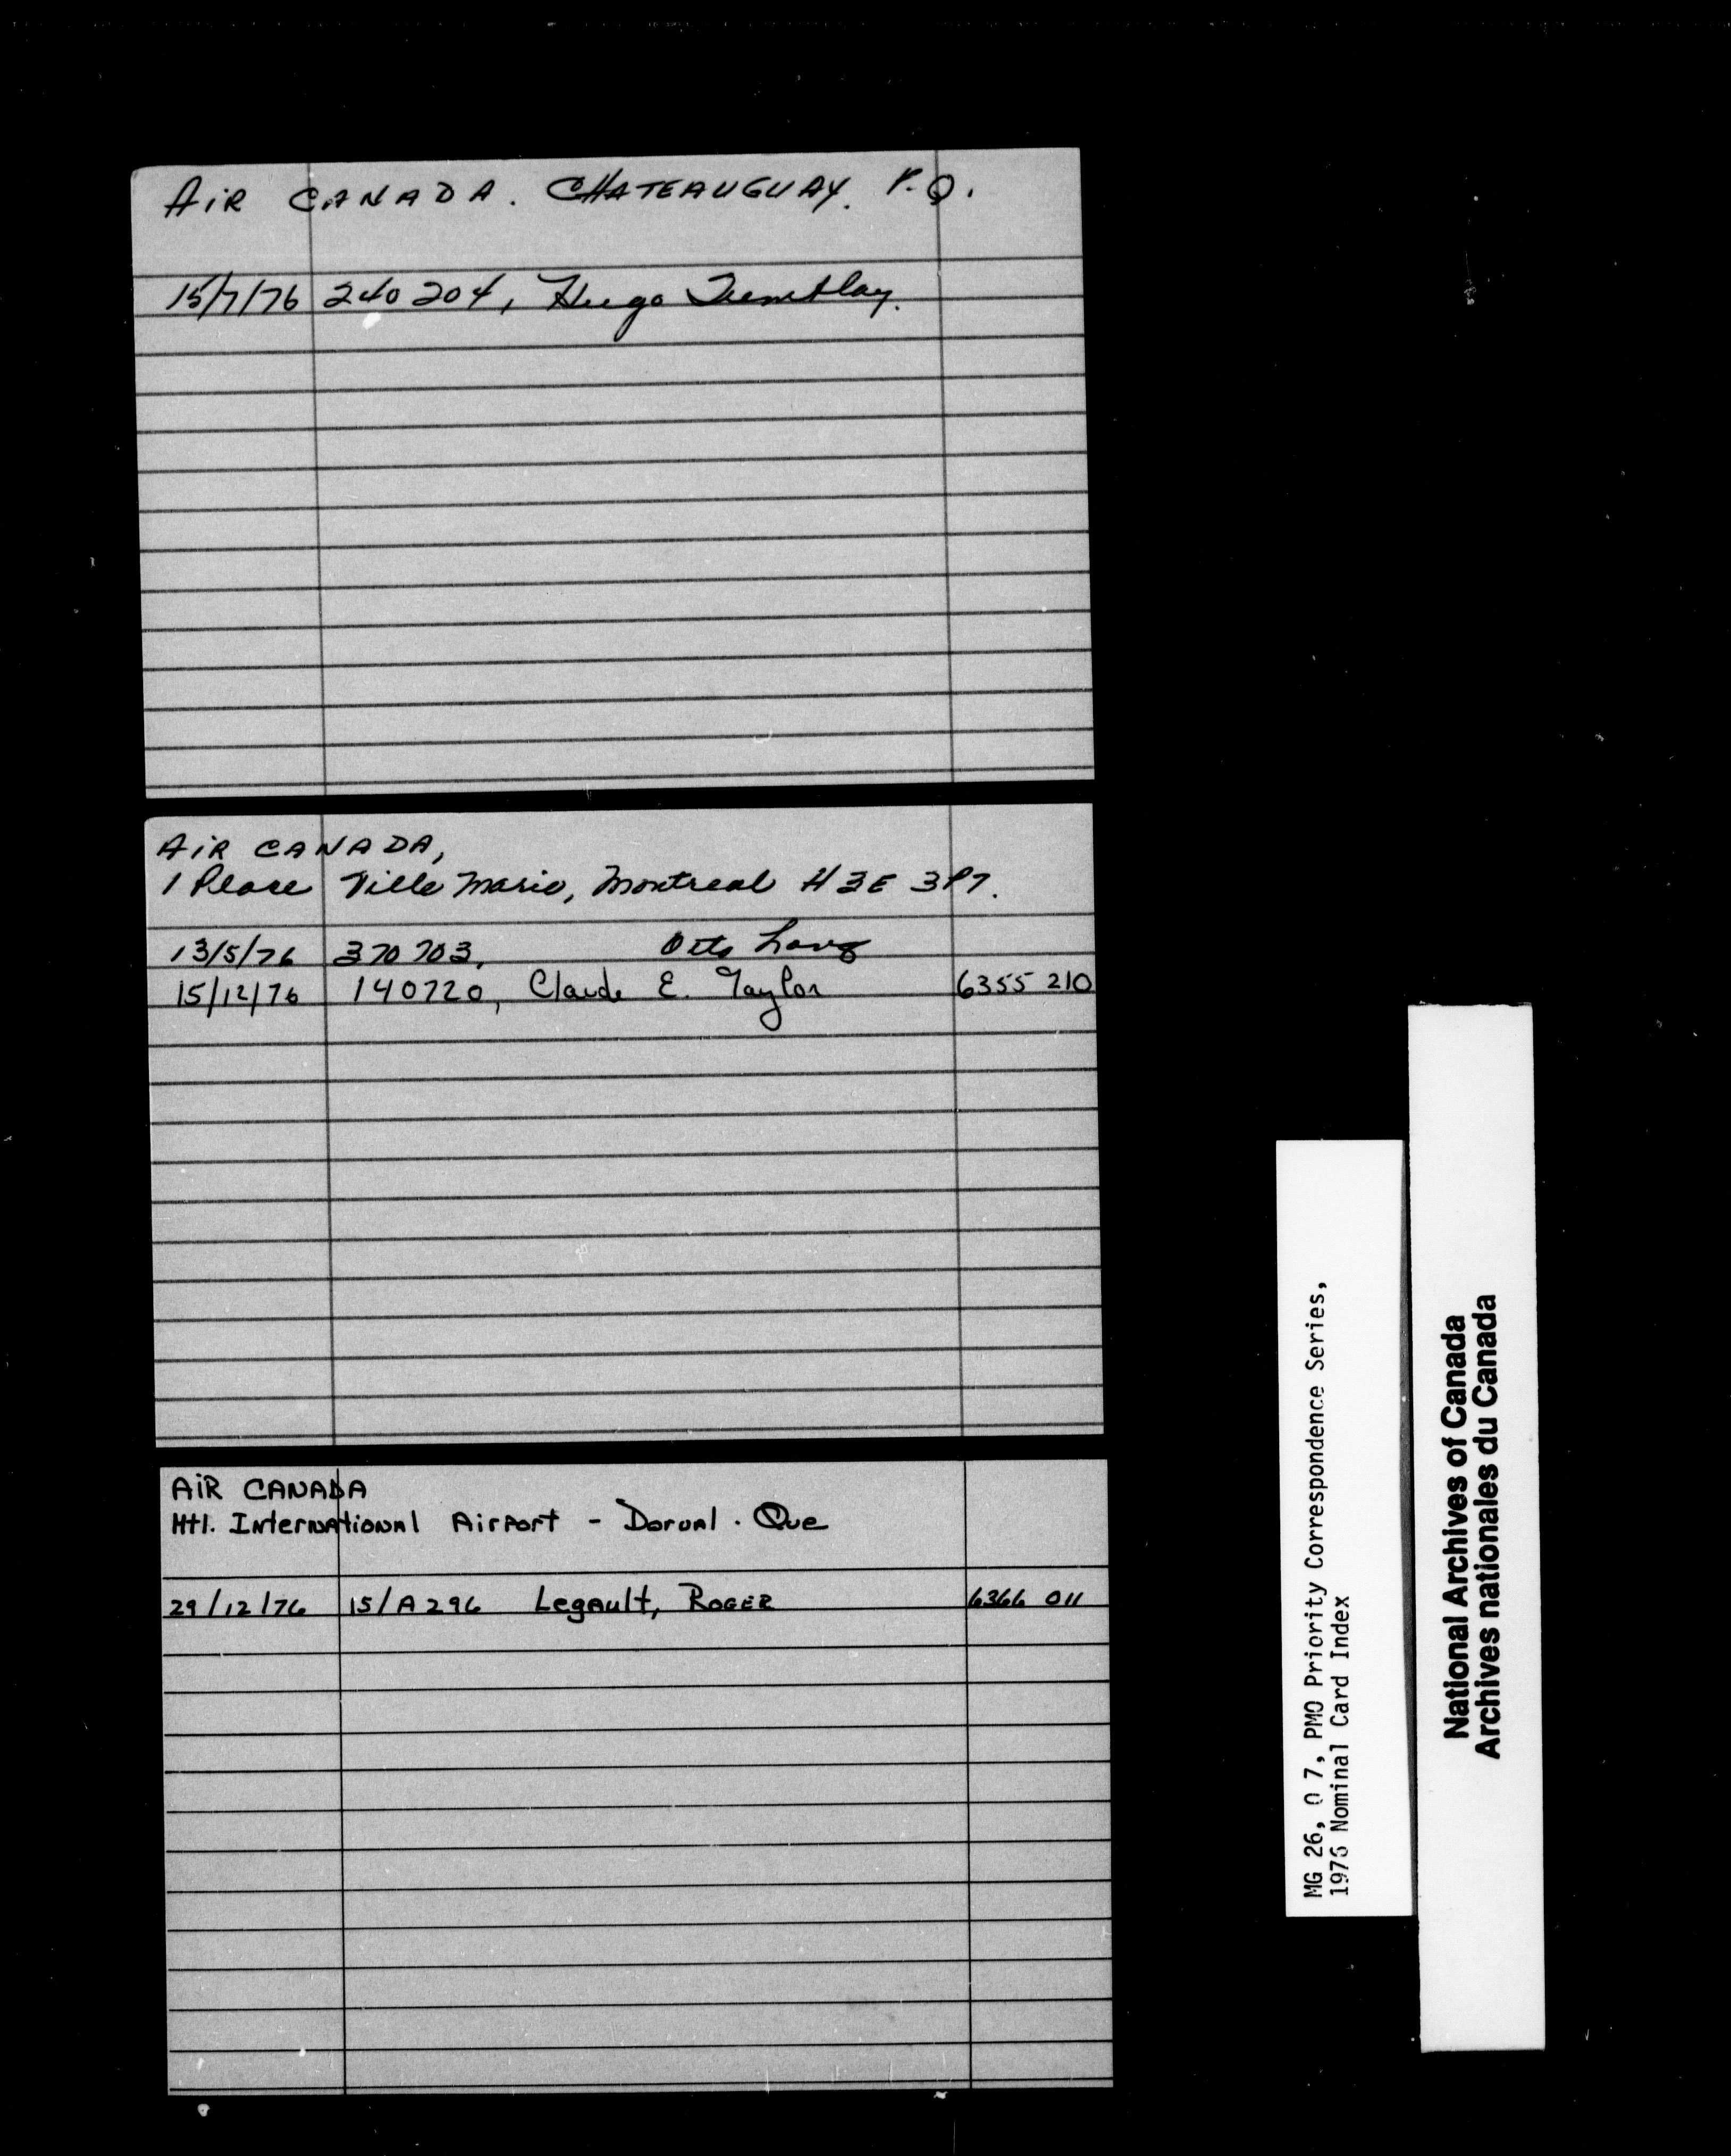 AIR CANADA. CHATEAUGUAY. P.Q.
15/7/76 240 204, Hugo Tremblay.
AIR CANADA,
1 Place Ville Marie, Montreal H3E 3P7.
13/5/76 370 703, Otto Lang
15/12/76 140720, Claude E. Taylor 6355 210
AIR CANADA
Mtl. International Airport - Dorval. Que
29/12/76 15/A296 Legault, ROGER 6366 011
MG 26, O 7, PMO Priority Correspondence Series,
1976 Nominal Card Index
National Archives of Canada
Archives nationales du Canada